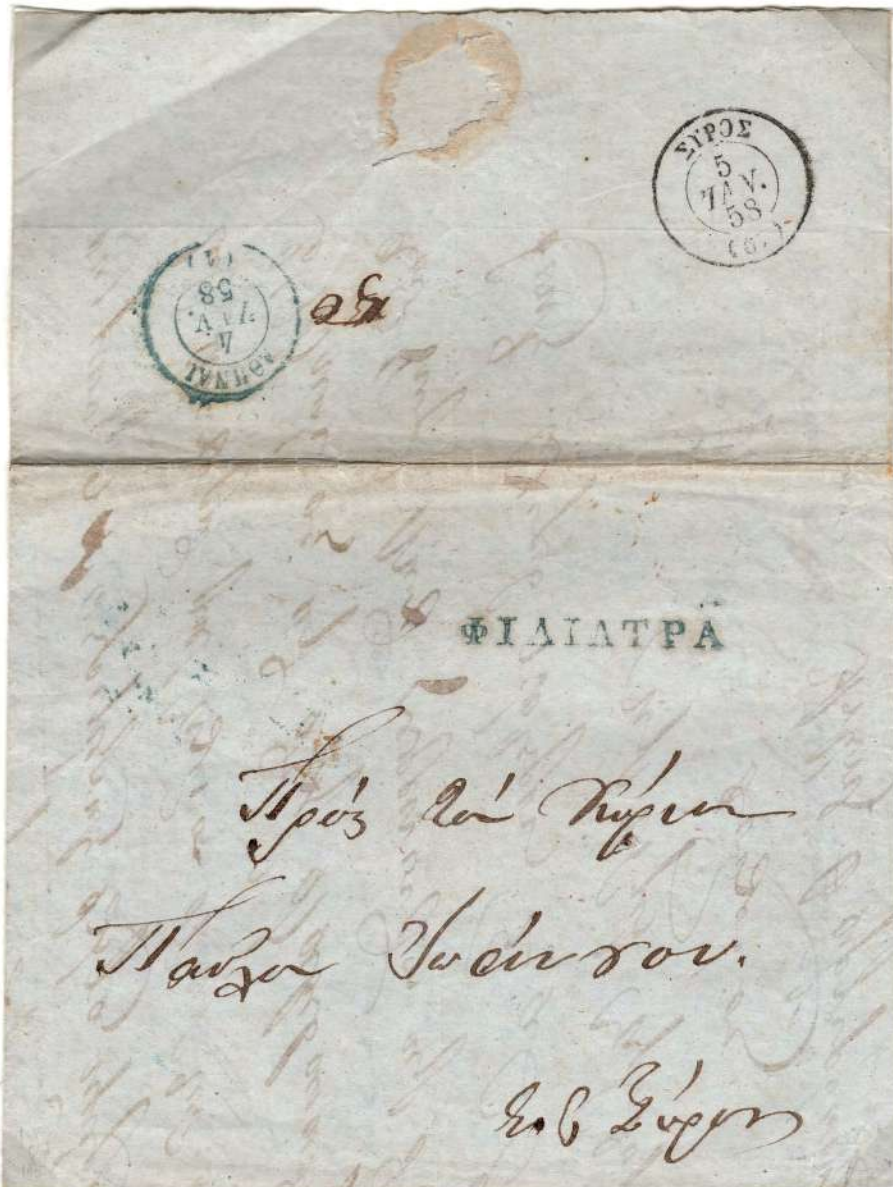 ΣΥΡΟΣ
5
ΙΑΝ.
58
(67)
ΑΘΗΝΑΙ
4
ΙΑΝ.
58
(1)
ΦΙΛΙΑΤΡΑ
Πρός τόν Κύριον
Παῦλον
Εἰς Σύρον